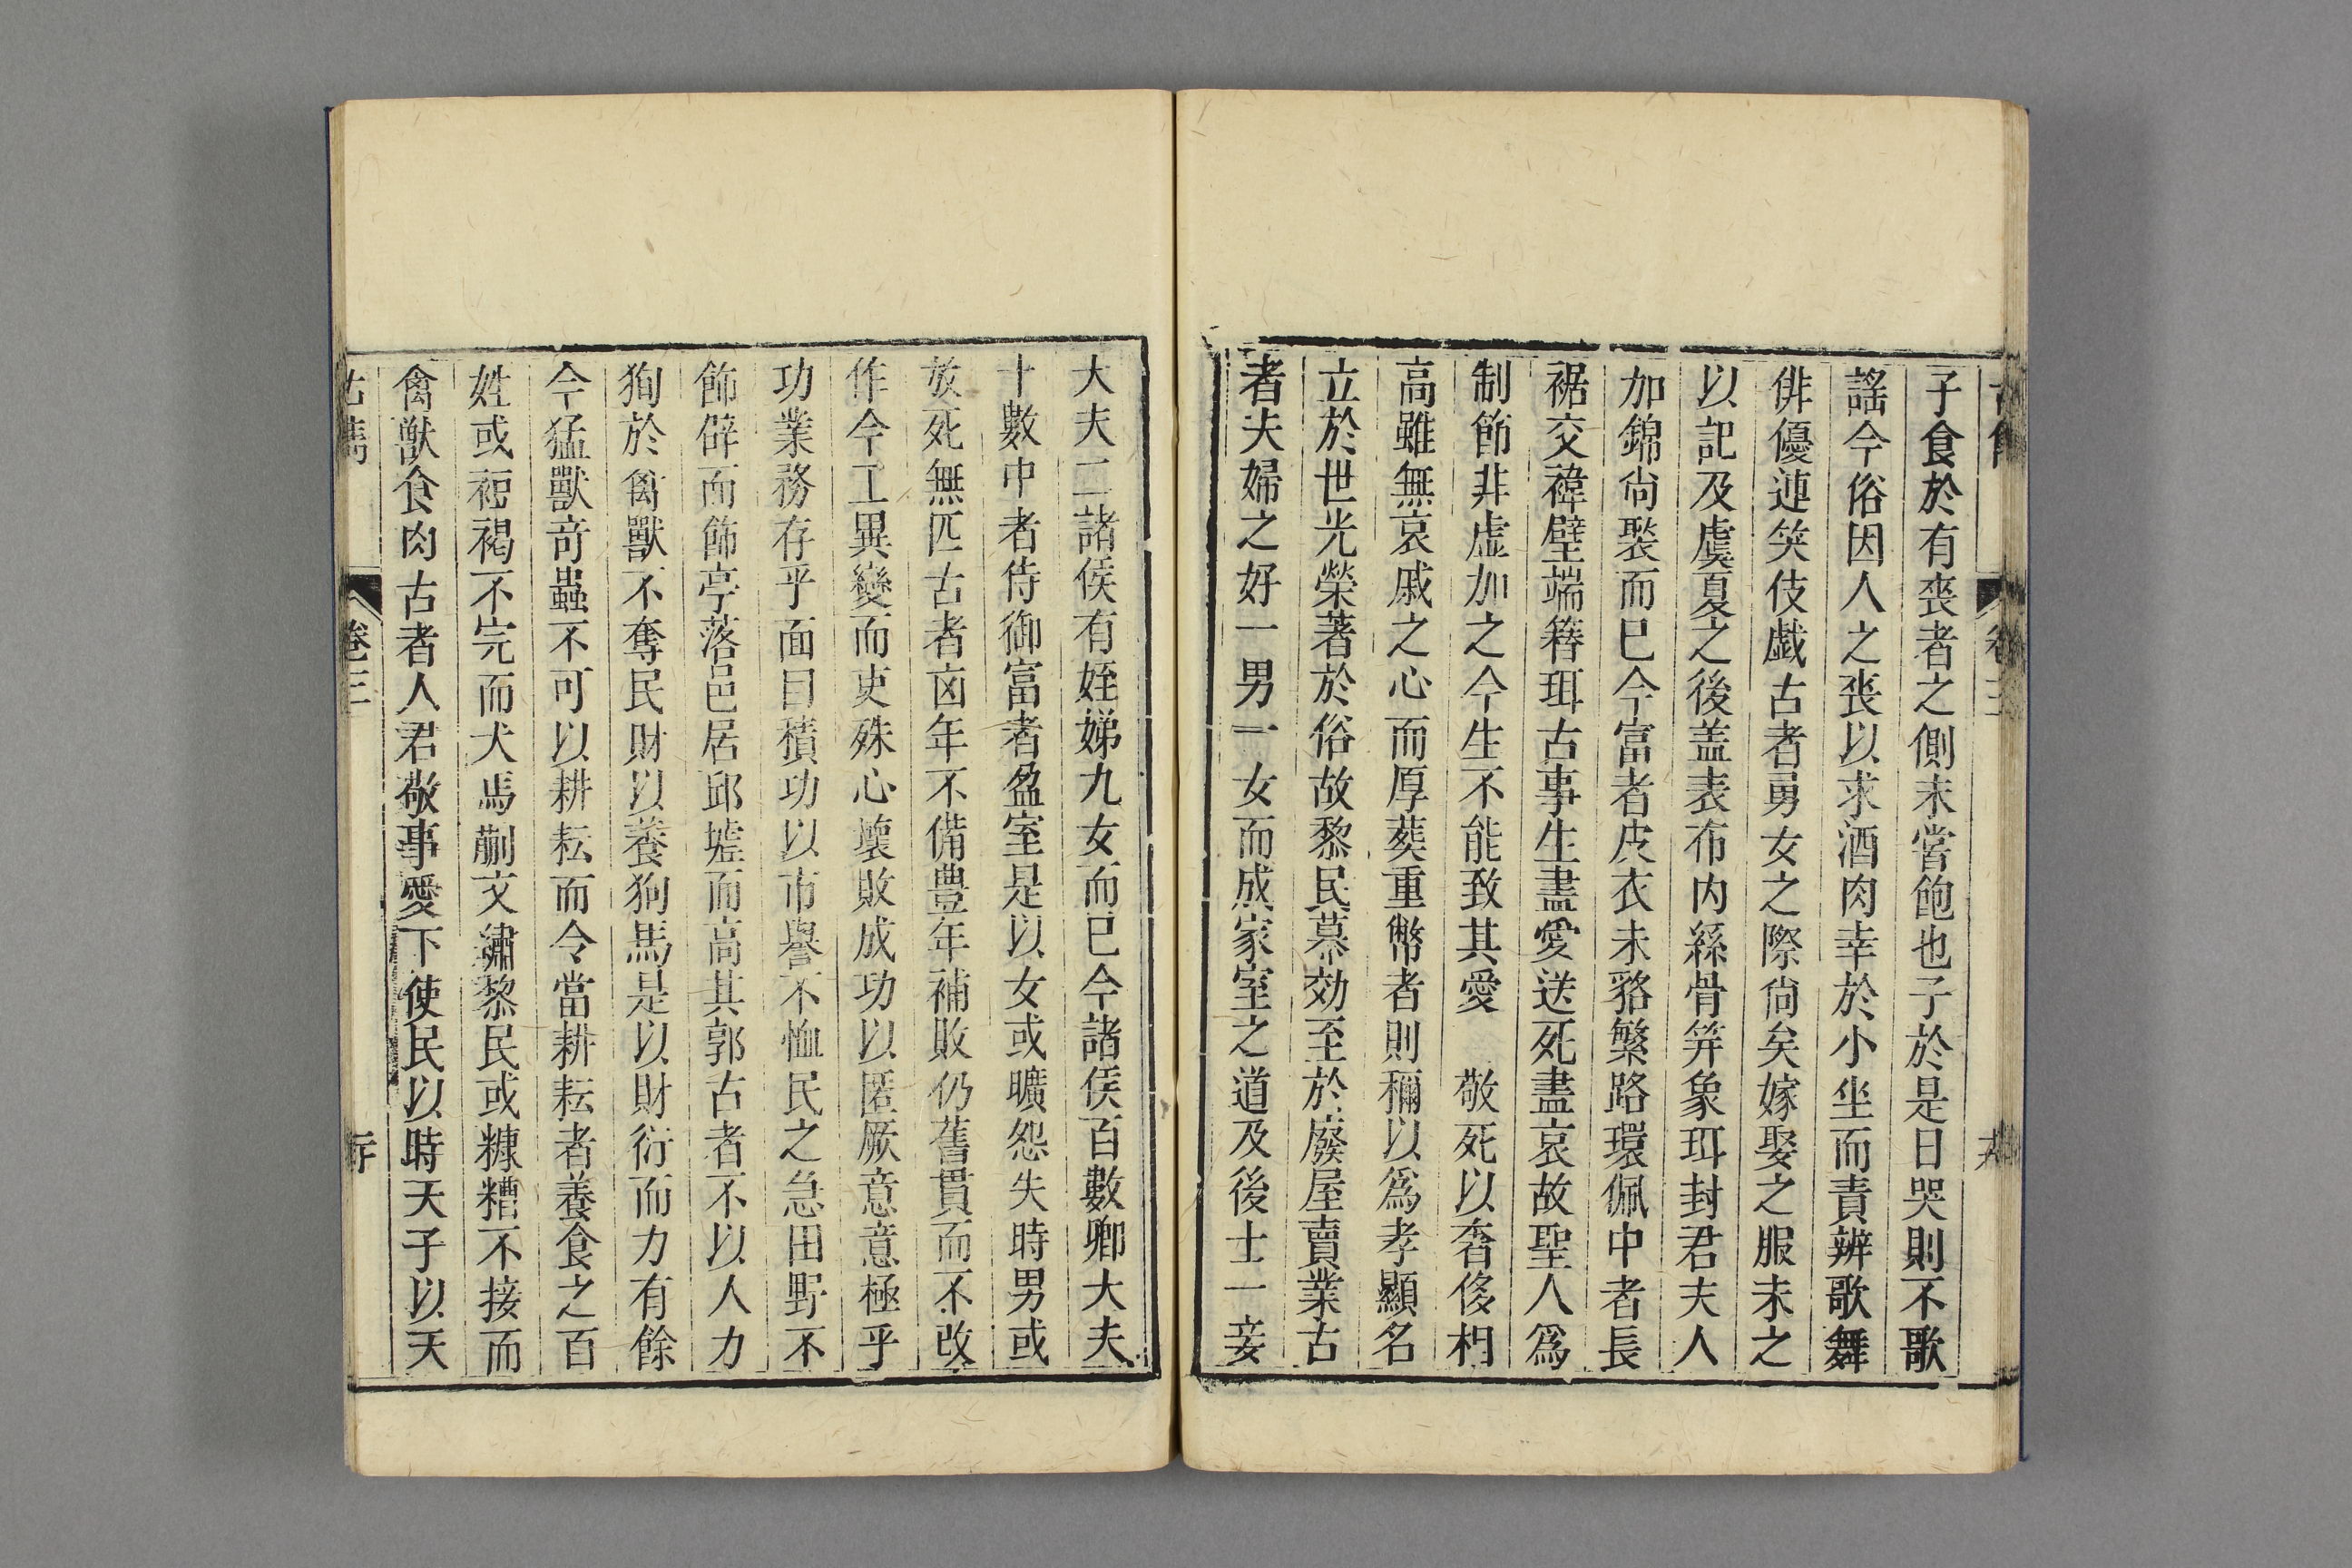 子食於有喪者之側未嘗飽也子於是日哭則不歌
謠今俗因人之喪以求酒肉幸於小坐而責辨歌舞
俳優連笑伎戱古者男女之際尙矣嫁娶之服未之
以記及虞夏之後盖表布內絲骨笄象珥封君夫人
加錦尙褧而已今富者皮衣未貉繁路環佩中者長
裾交褘壁端簪珥古事生盡愛送死盡哀故聖人爲
制節非虛加之今生不能致其愛 敬死以奢侈相
高雖無哀戚之心而厚葬重幣者則稱以爲孝顯名
立於世光榮著於俗故黎民慕効至於廢屋賣業古
者夫婦之好一男一女而成家室之道及後士一妾
大夫二諸侯有姪娣九女而已今諸侯百數卿大夫
十數中者侍御富者盈室是以女或曠怨失時男或
放死無匹古者凶年不備豊年補敗仍舊貫而不改
作今工異變而吏殊心壞敗成功以匿厥意意極乎
功業務存乎面目積功以市譽不恤民之急田野不
飾辟而飾亭落邑居郎墟而高其郭古者不以人力
狥於禽獸不奪民財以養狗馬是以財衍而力有餘
今猛獸奇蟲不可以耕耘而令當耕耘者養食之百
姓或裋褐不完而犬馬䘏文繡黎民或糠糟不接而
禽獸食肉古者人君敬事愛下使民以時天子以天
卷三